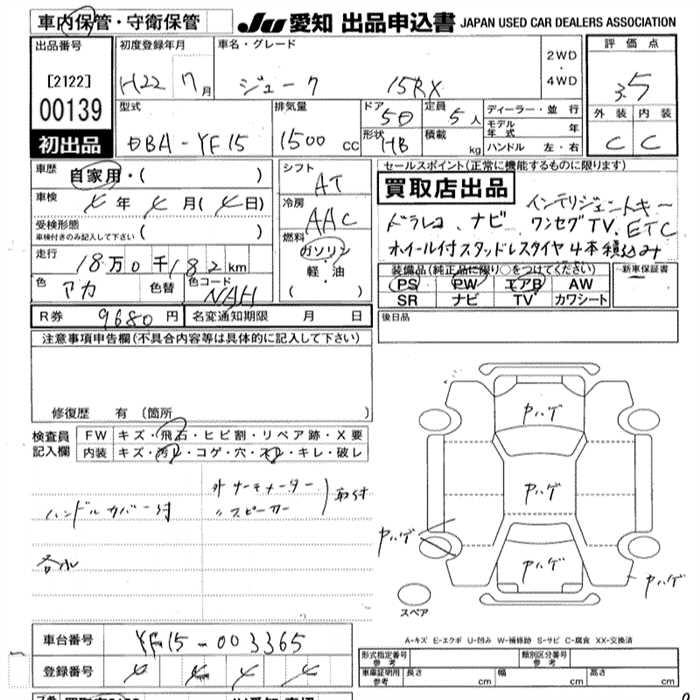 車内保管・守衛保管
JU 愛知 出品申込書 JAPAN USED CAR DEALERS ASSOCIATION
出品番号
[2122]
00139
初出品
初度登録年月
H22 7月
車名・グレード
ジューク 15RX
2WD
・
4WD
評価点
3.5
外装 内装
C C
型式
DBA-YF15
排気量
1500 cc
ドア
5D
形状
HB
定員
5人
積載
kg
ディーラー・並行
モデル年式 年
ハンドル 左・右
車歴
自家用・( )
車検
年 月( 日)
受検形態
車検付きのみ記入して下さい
( )
走行
18万0千182km
色
アカ
色替
色コード
NAH
シフト
AT
冷房
AAC
燃料
ガソリン
軽・油
( )
R券 9680円
名変通知期限 月 日
セールスポイント(正常に機能するものに限ります)
買取店出品
インテリジェントキー
ドラレコ、ナビ、ワンセグTV、ETC
ホイール付スタッドレスタイヤ4本積込み
装備品(純正品に限り○をつけてください)
PS PW エアB AW
SR ナビ TV カワシート
新車保証書
後日品
注意事項申告欄(不具合内容等は具体的に記入して下さい)
修復歴 有(箇所 )
検査員記入欄
FW キズ・飛石・ヒビ割・リペア跡・X要
内装 キズ・汚れ・コゲ・穴・スレ・キレ・破レ
ハンドルカバー付
外ナーモメーター
〃スピーカー
取付
ヤハゲ
ヤハゲ
ヤハゲ
ヤハゲ
ヤハゲ
スペア
A-キズ E-エクボ U-凹み W-補修跡 S-サビ C-腐食 XX-交換済
車台番号 YF15-003365
登録番号
形式指定番号
参考
類別区分番号
参考
車庫証明用
参考
長さ cm 幅 cm 高さ cm